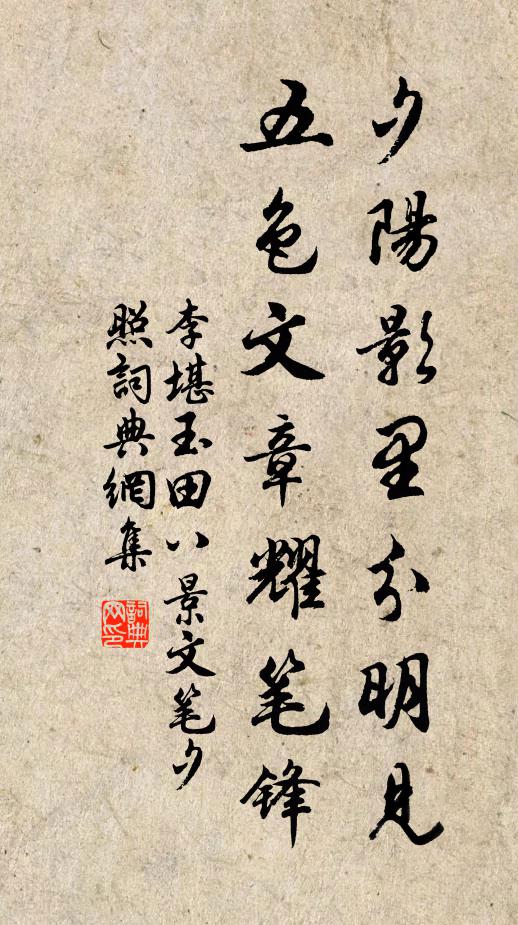 夕陽影里分明見
五色文章耀笔锋
李堪玉田八景文笔夕
照詞典網集
詞典
网印